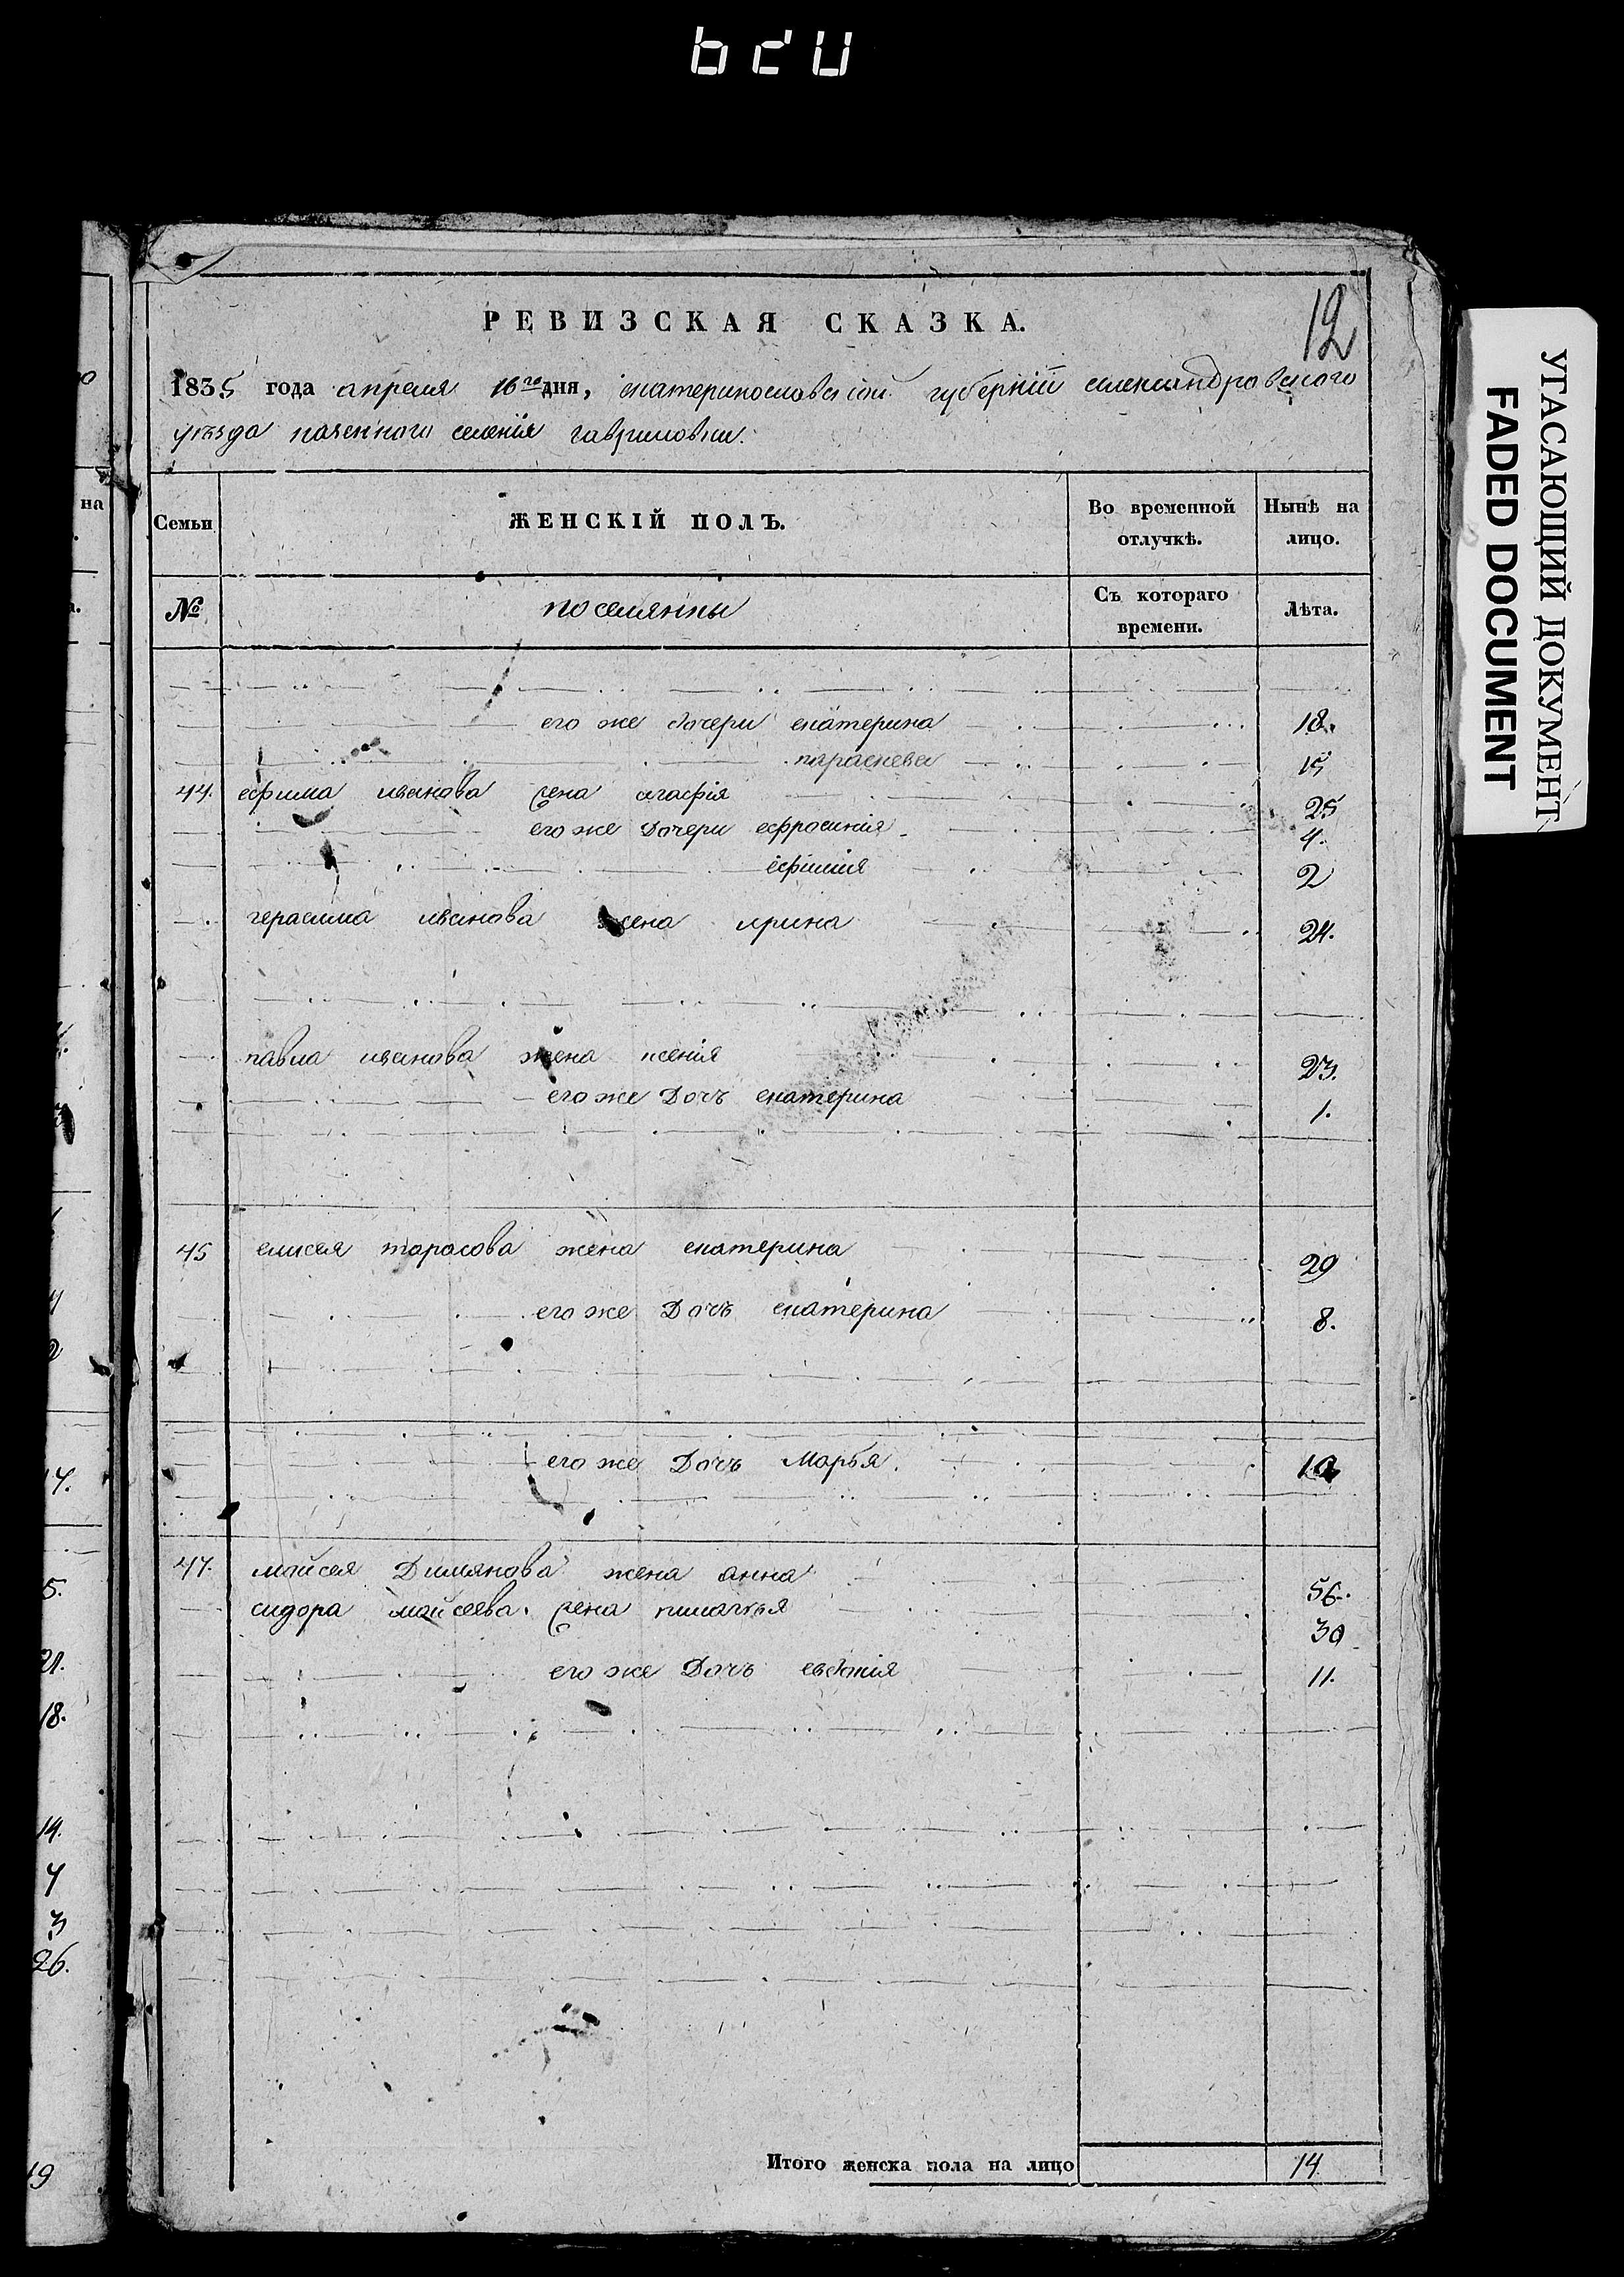 РЕВИЗСКАЯ СКАЗКА.
12
1835 года апреля 16го дня, екатеринославской губерніи александровского
уѣзда казенного селенія гавриловки.
на
Семьи
ЖЕНСКІЙ ПОЛЪ.
Во временной отлучкѣ.
Нынѣ на лицо.
№
поселянны
Съ котораго времени.
Лѣта.
его же дочери екатерина 18.
параскева 15
44. ефима иванова жена агафія 25
его же дочери ефросинія 4.
ефимія 2
герасима иванова жена ирина 24.
павла иванова жена ксенія 23.
его же Дочъ екатерина 1.
45 елисея тарасова жена екатерина 29
его же Дочъ екатерина 8.
его же Дочъ Марья. 19
47. мойсея Димянова жена анна 56.
сидора мойсеева жена 30
его же Дочъ евдокія 11.
Итого женска пола на лицо 14
21.
18.
14.
4
3
26.
19
УГАСАЮЩИЙ ДОКУМЕНТ
FADED DOCUMENT